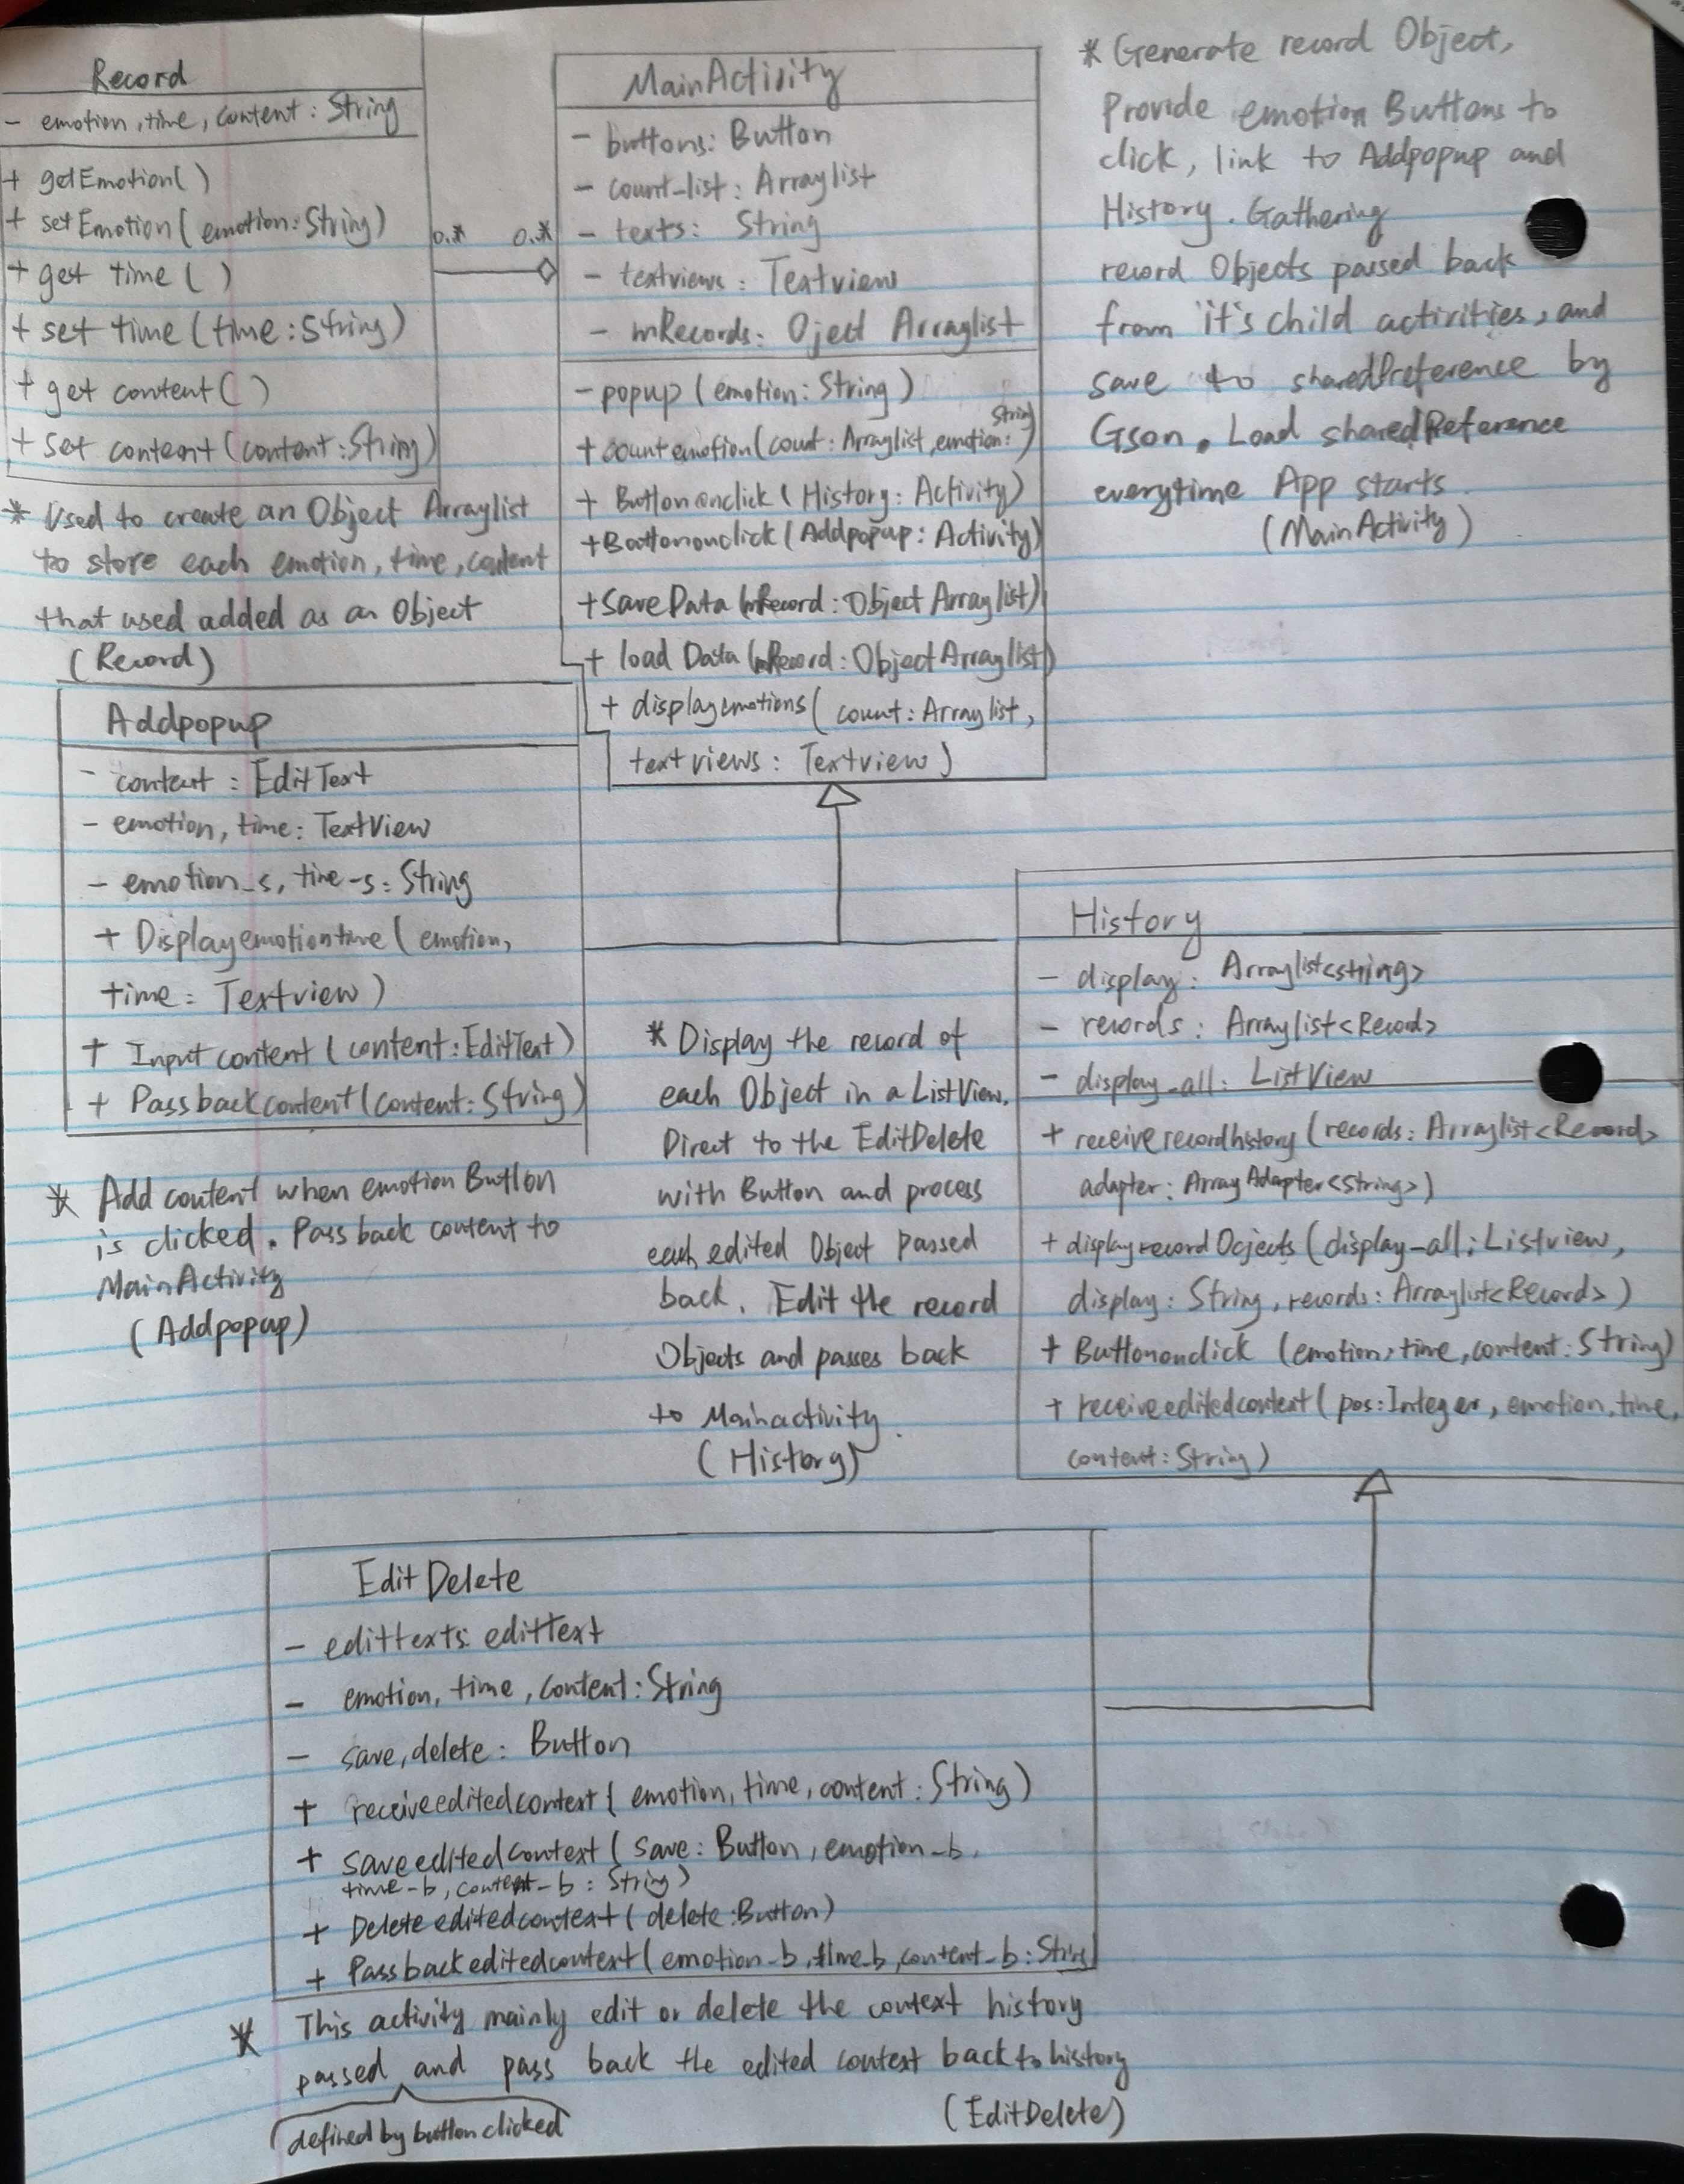 Record
- emotion, time, content : String
+ getEmotion( )
+ setEmotion( emotion: String)
+ get time ( )
+ set time (time : String)
+ get content ( )
+ set content (content : String)
* Used to create an Object Arraylist
to store each emotion, time, content
that used added as an Object
(Record)
0.* 0.*
MainActivity
- buttons: Button
- count_list : Arraylist
- texts: String
- textviews : Textview
- mRecords: Oject Arraylist
- popup (emotion: String)
String
+ count emotion(count: Arraylist, emotion: )
+ Buttononclick ( History: Activity)
+ Buttononclick (Addpopup : Activity)
+ SaveData (mRecord: Object Arraylist)
+ load Data (mRecord: Object Arraylist)
+ displayemotions( count: Arraylist,
textviews : Textview )
* Generate record Object,
Provide emotion Buttons to
click, link to Addpopup and
History. Gathering
record Objects passed back
from it's child activities, and
save to sharedPreference by
Gson. Load sharedPreference
everytime App starts
(MainActivity)
Addpopup
- content : EditText
- emotion, time: TextView
- emotion_s, time-s: String
+ Displayemotiontime ( emotion,
time : Textview )
+ Input content ( content: EditText)
+ Pass backcontent(content: String)
* Add content when emotion Button
is clicked. Pass back content to
MainActivity
(Addpopup)
* Display the record of
each Object in a ListView.
Direct to the EditDelete
with Button and process
each edited Object passed
back. Edit the record
Objects and passes back
to Mainactivity.
(History)
History
- display: Arraylist<string>
- records : Arraylist<Record>
- display_all: ListView
+ receiverecordhistory (records: Arraylist<Record>
adapter: ArrayAdapter<String>)
+ displayrecord Ocjects (display_all: Listview,
display: String, records: Arraylist<Record>)
+ Buttononclick (emotion, time, content: String)
+ receiveeditedcontext ( pos: Integer, emotion, time,
content: String)
EditDelete
- edittexts: edittext
- emotion, time, content: String
- save, delete : Button
+ receiveeditedcontext ( emotion, time, content : String )
+ saveeditedcontext ( save: Button, emotion_b,
time-b, content-b : String)
+ Delete editedcontext ( delete: Button)
+ Pass backeditedcontext ( emotion_b, time_b, content_b : String)
* This activity mainly edit or delete the context history
passed and pass back the edited context back to history
(defined by button clicked
(EditDelete)